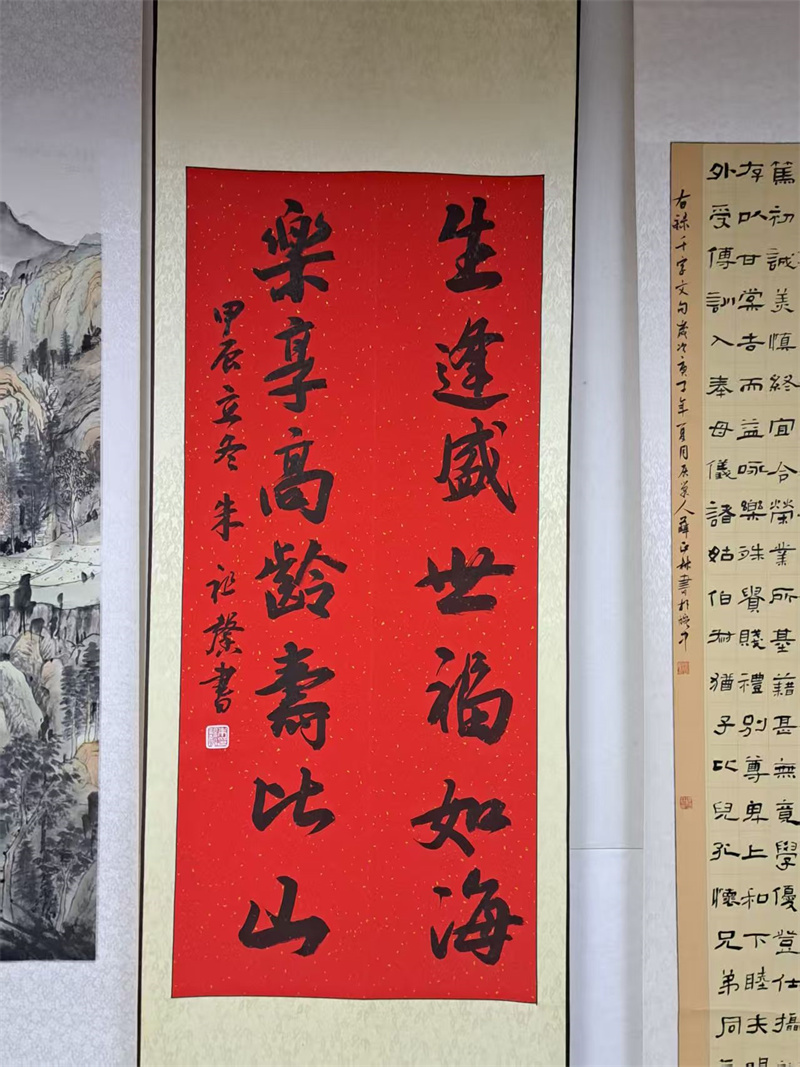 篤初誠美慎終宜令榮業所基藉甚無竟學優登仕攝
存以甘棠去而益咏樂殊貴賤禮別尊卑上和下睦夫
外受傅訓入奉母儀諸姑伯叔猶子比兒孔懷兄弟同
右録千字文句歲次
生逢盛世福如海
樂享高齡壽比山
甲辰立冬朱馨書